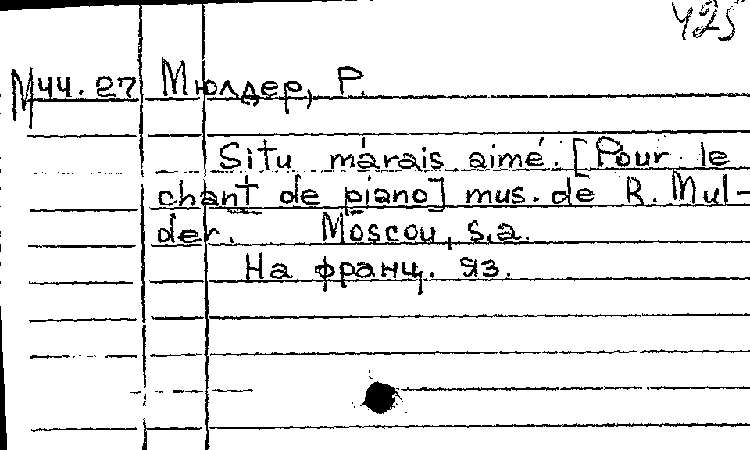 425
М44.27 Мюлдер, Р.
Situ márais aimé. [Pour le
chant de piano] mus. de R. Mul-
der. Moscou, s.a.
На франц. яз.